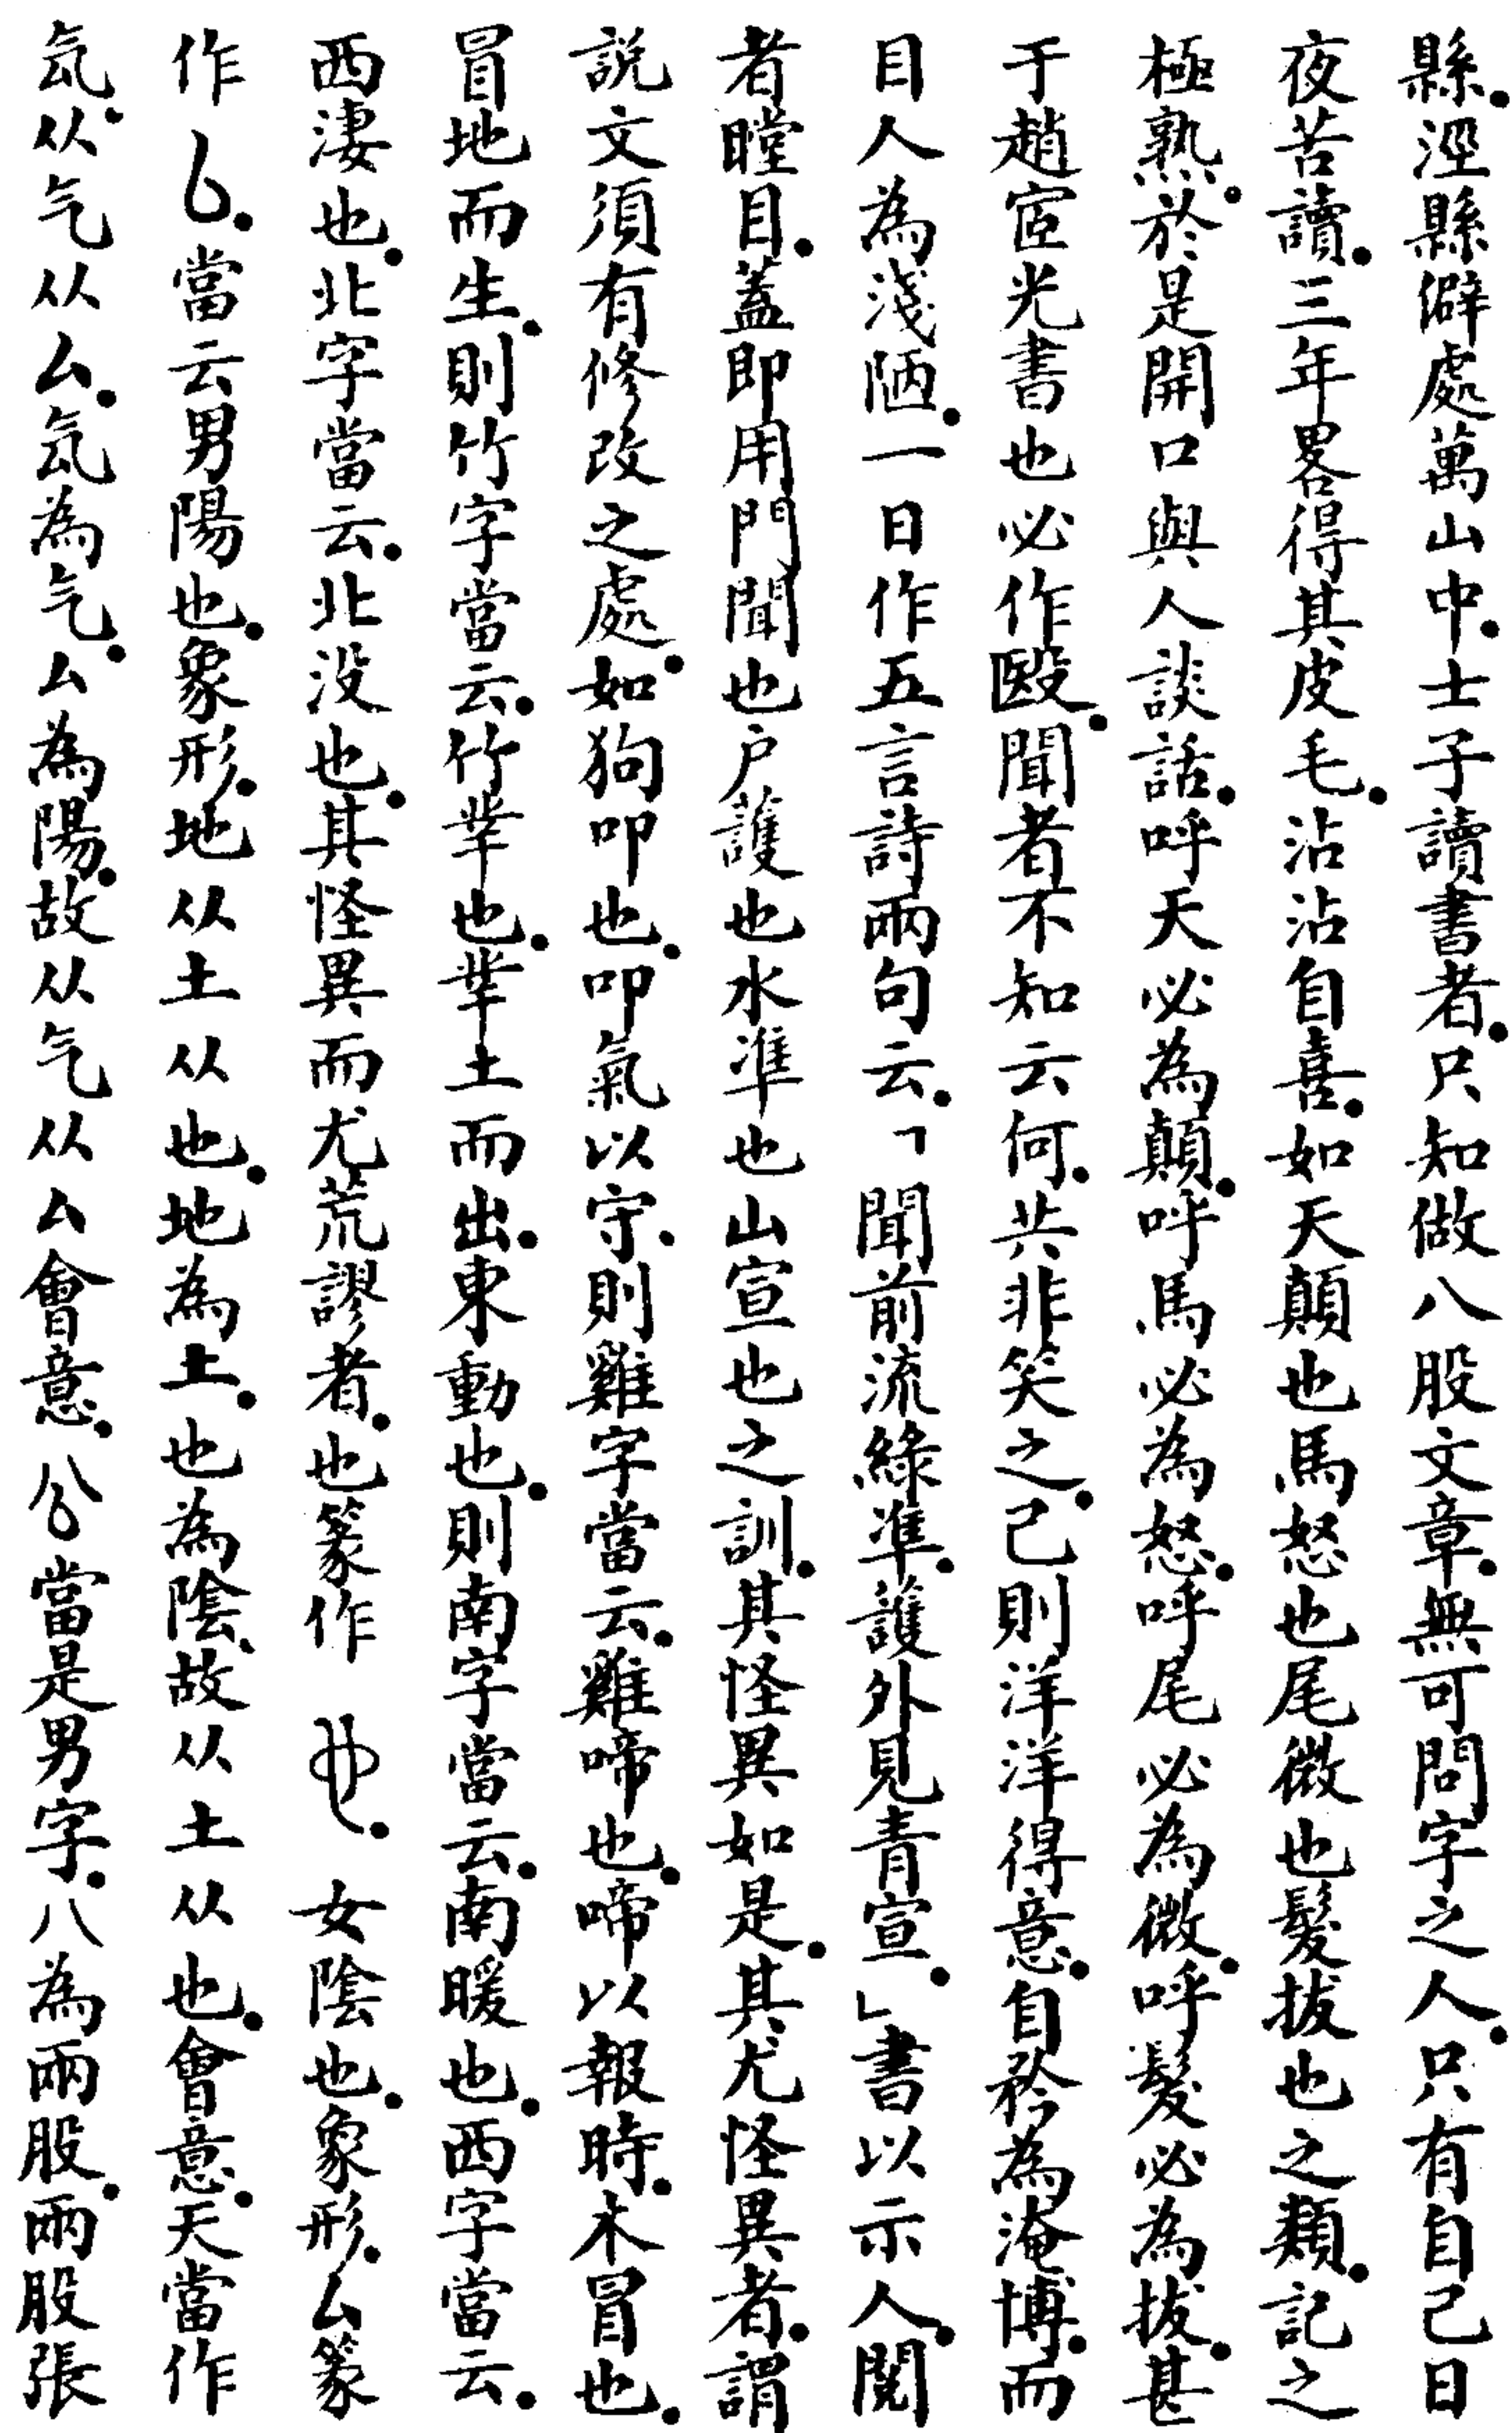 縣。涇縣僻處萬山中。士子讀書者。只知做八股文章。無可問字之人。只有自己日
夜苦讀。三年畧得其皮毛。沾沾自喜。如天顛也馬怒也尾微也髮拔也之類。記之
極熟。於是開口與人談話。呼天必為顛。呼馬必為怒。呼尾必為微。呼髮必為拔。甚
于趙宧光書也必作殹。聞者不知云何。共非笑之。己則洋洋得意。自矜為淹博。而
目人為淺陋。一日作五言詩兩句云。「聞前流綠準。護外見青宣。」書以示人。閱
者瞠目。蓋即用門聞也户護也水準也山宣也之訓。其怪異如是。其尤怪異者。謂
說文須有修改之處。如狗叩也。叩氣以守。則雞字當云。雞啼也。啼以報時。木冒也。
冒地而生。則竹字當云。竹㞷也。㞷土而出。東動也。則南字當云。南暖也。西字當云。
西淒也。北字當云。北没也。其怪異而尤荒謬者。也篆作。女陰也。象形。厶篆
作。當云男陽也。象形。地从土从也。地為土。也為陰。故从土从也。會意。天當作
氜。从气从厶。氜為气。厶為陽。故从气从厶會意。公當是男字。八為兩股。兩股張